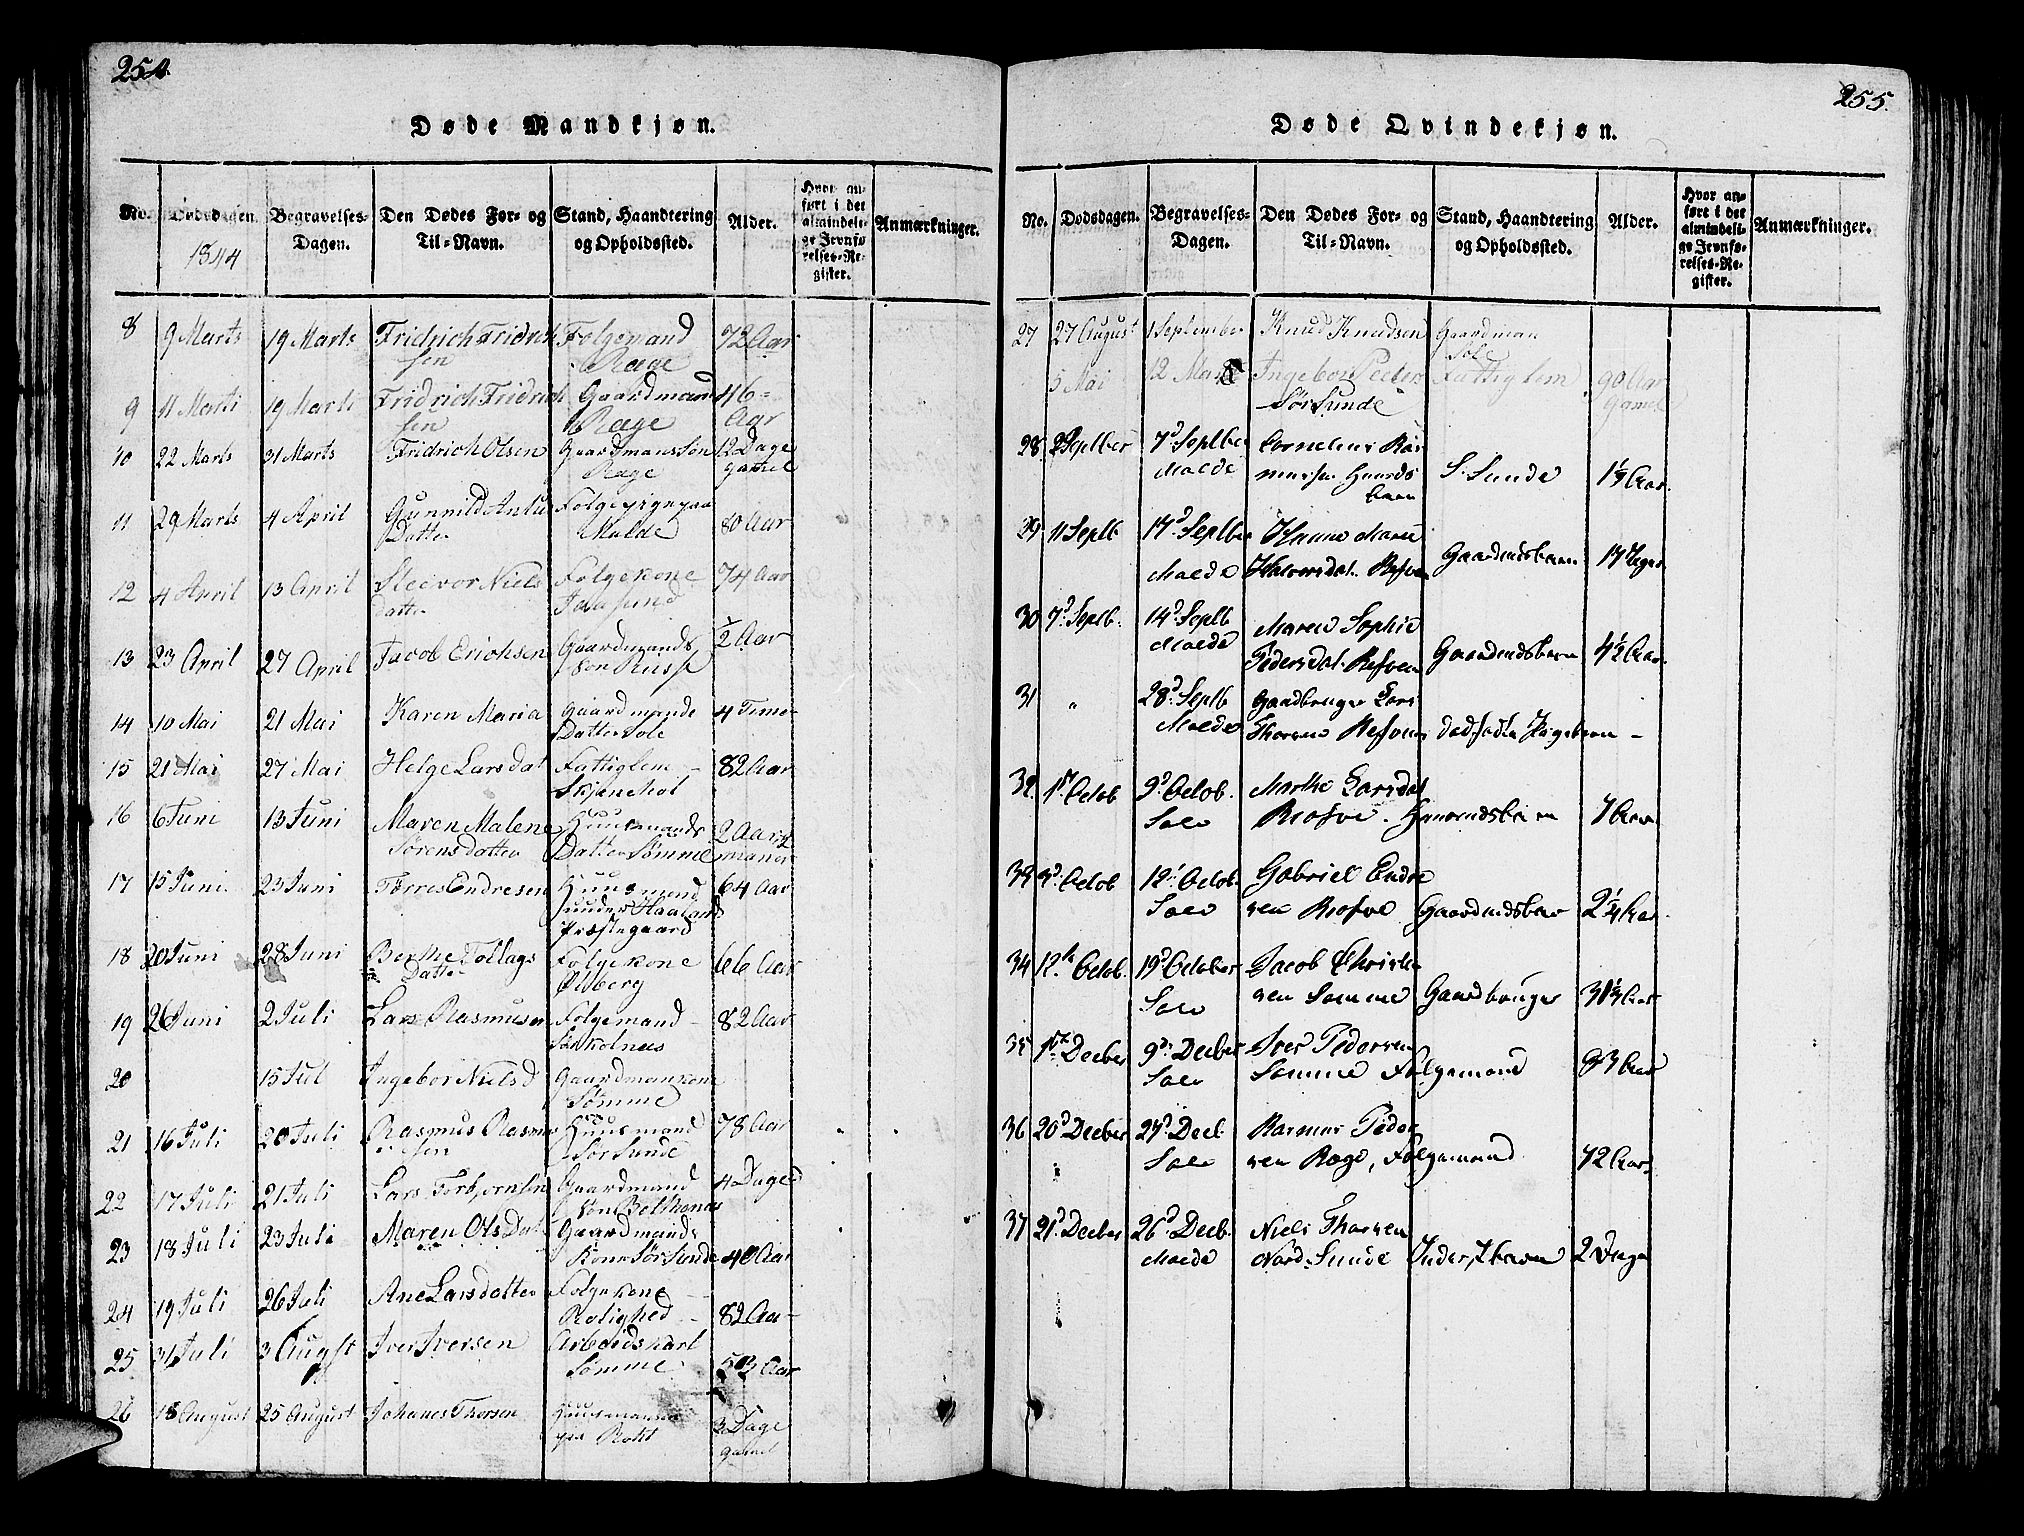 254
Døde Mandkjøn.
No. Dødsdagen. Begravelses-Dagen. Den Dødes For- og Til-Navn. Stand, Haandtering og Opholdssted. Alder. Hvor anført i det almindelige Jevnførelses-Register. Anmærkninger.
1844
8 9 Marts 19 Marts Fridrich Fridrichsen Folgemand Ræge 72 Aar
9 11 Marti 19 Marti Fridrich Fridrichsen Gaardmand Ræge 46 Aar
10 22 Marts 31 Marts Fridrich Olsen Gaardmans Søn Ræge 12 Dage gamel
11 29 Marts 4 April Gunnild Datter Malde 80 Aar
12 4 April 13 April Niels datter Folgekone 74 Aar
13 23 April 27 April Jacob Erichsen Gaardmands Søn 1/2 Aar
14 10 Mai 21 Mai Karen Maria Gaardmands Datter Sole 4 Time
15 21 Mai 27 Mai Helge Larsdat Fattiglem 82 Aar
16 6 Juni 13 Juni Maren Malene Sørensdatter Huusmands Datter Sømme 2 Aar
17 15 Juni 23 Juni Tørres Endresen Huusmand under Haaland Præstegaard 64 Aar
18 20 Juni 28 Juni Berthe Tollags Datter Folgekone Ølberg 66 Aar
19 26 Juni 2 Juli Lars Rasmusen Folgemand 82 Aar
20 15 Jul Ingebor Nielsd Gaardmankone Sømme
21 16 Juli 20 Juli Rasmus Rasmusen Huusmand Sør Sunde 78 Aar
22 17 Juli 21 Juli Lars Torbjørnsen Gaardmand Søn 4 Dage
23 18 Juli 23 Juli Maren Olsdat Gaardmands Kone Sør Sunde 40 Aar
24 19 Juli 26 Juli Ane Larsdatter Folgekone Rolighed 82 Aa
25 31 Juli 3 August Iver Iversen Arbeidskarl Sømme Aar
26 18 August 25 August Johanes Thorsen 3 Dage gamel
255.
Døde Qvindekjøn.
No. Dødsdagen. Begravelses-Dagen. Den Dødes For- og Til-Navn. Stand, Haandtering og Opholdssted. Alder. Hvor anført i det almindelige Jevnførelses-Register. Anmærkninger.
27 27 August 1 September Knud Knudsen Gaardman Sole
5 Mai 12 Mai Ingebor Peders Sør Sunde Fattiglem 90 Aar Gamel
28 2 Septber 7d Septbr Malde Cornelius Rasmussen S. Sunde 1 1/2 Aar
29 11 Septb 17d Septber Malde Hanne Marie Halvorsdat. Refven Gaardmdsbarn 17 Uger
30 7d Septb. 14d Septb Malde Maren Sophie Pedersdat. Refven Gaardmdsbarn 4 1/2 Aar
31 " 28d Septb Malde Gaardbruger Lars Thorsens Refven dødfødte Pigebarn -
32 1st Octob 9d Octob. Sole Marthe Larsdat Refve. 7 Aar
33 3d Octob 12t Octob. Sole Gabriel Endresen Refve Gaardmdsbarn 2 1/4 Aar
34 12te Octob. 19d October Sole Jacob Christensen Sømme Gaardbruger 31 1/2 Aar
35 1st Decber 9d Decber Sole Iver Pedersen Sømme Folgemand 83 Aar
36 20d Decber 27d Decb. Sole Rasmus Pedersen Ræge, Folgemand 72 Aar
37 21d Decber 26d Decb. Malde Niels Thorsen Nord Sunde 2 Dage